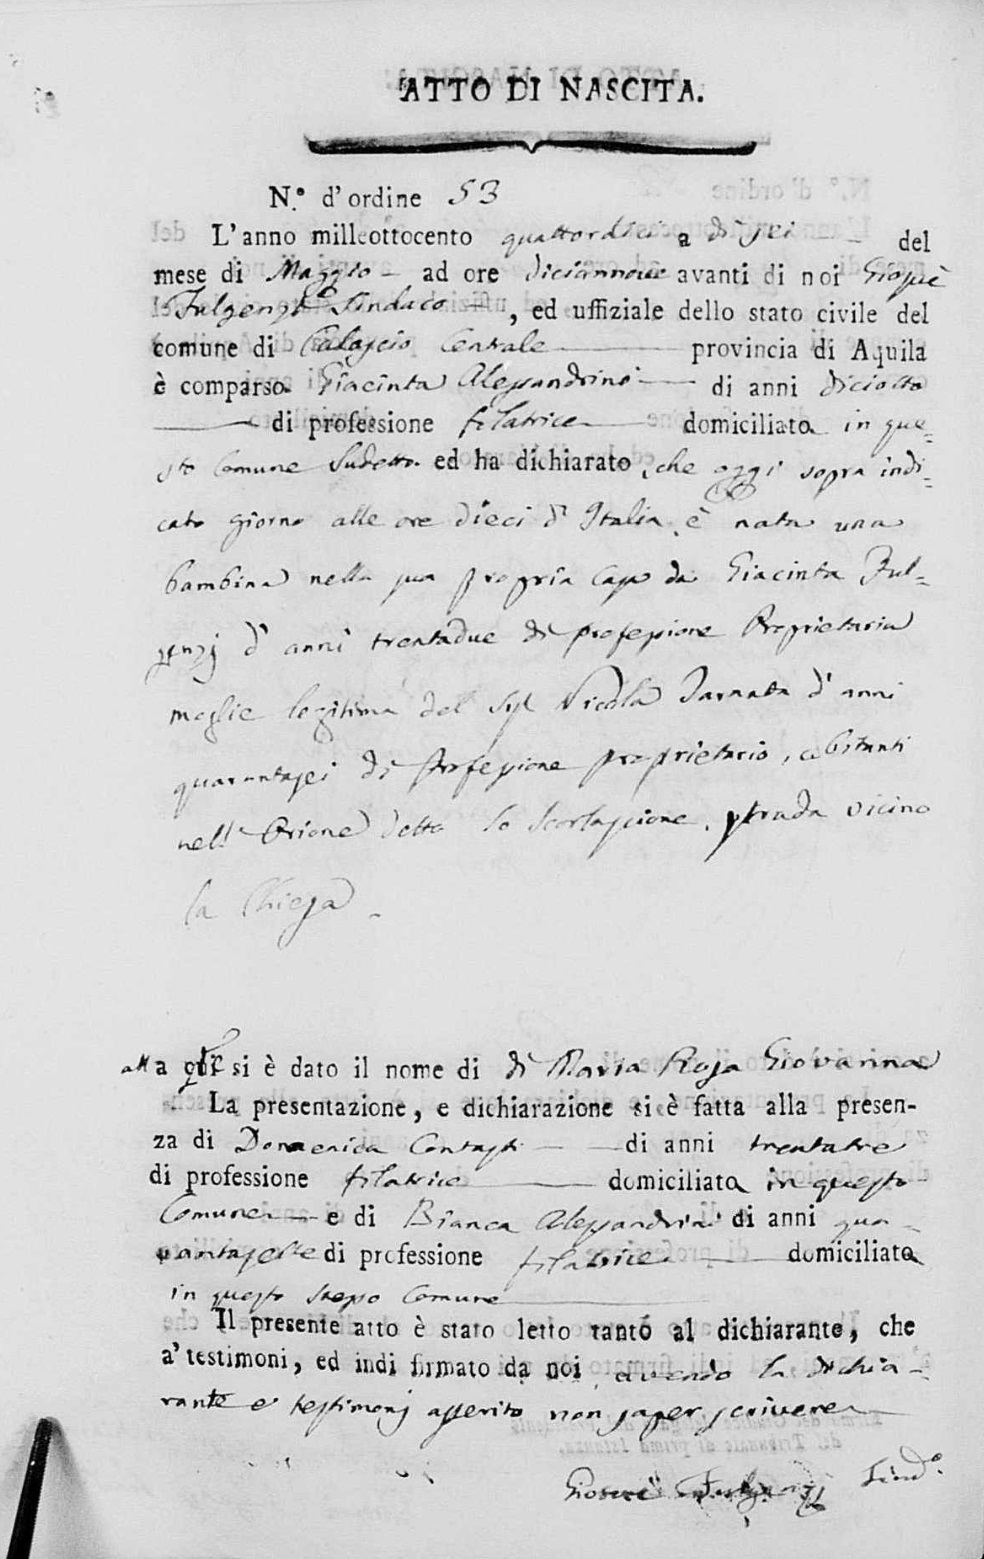 ATTO DI NASCITA.
N.° d'ordine 53
L'anno milleottocento quattordici a dì sei del
mese di Maggio ad ore diciannove avanti di noi Giosuè
Fulgenzj Sindaco, ed uffiziale dello stato civile del
comune di Calascio Centrale provincia di Aquila
è comparsa Giacinta Alessandrini di anni diciotto
di professione filatrice domiciliata in que=
sto Comune sudetto ed ha dichiarato, che oggi sopra indi=
cato giorno alle ore dieci d'Italia è nata una
bambina nella sua propria casa da Giacinta Ful=
genzj d'anni trentadue di professione Proprietaria
moglie legitima del Nicola d'anni
quarantasei di professione proprietario, abitanti
nell' detto lo strada vicino
la Chiesa.
alla si è dato il nome di di Maria Rosa Giovanna
La presentazione, e dichiarazione si è fatta alla presen-
za di Domenica di anni trentatre
di professione filatrice domiciliata in questo
Comune e di Bianca Alessandrini di anni qua=
rantasette di professione filatrice domiciliata
in questo stesso Comune
Il presente atto è stato letto tanto al dichiarante, che
a' testimoni, ed indi firmato da noi, avendo la dichia=
rante e testimonj asserito non saper scrivere
Giosuè Fulgenzj Sind.°